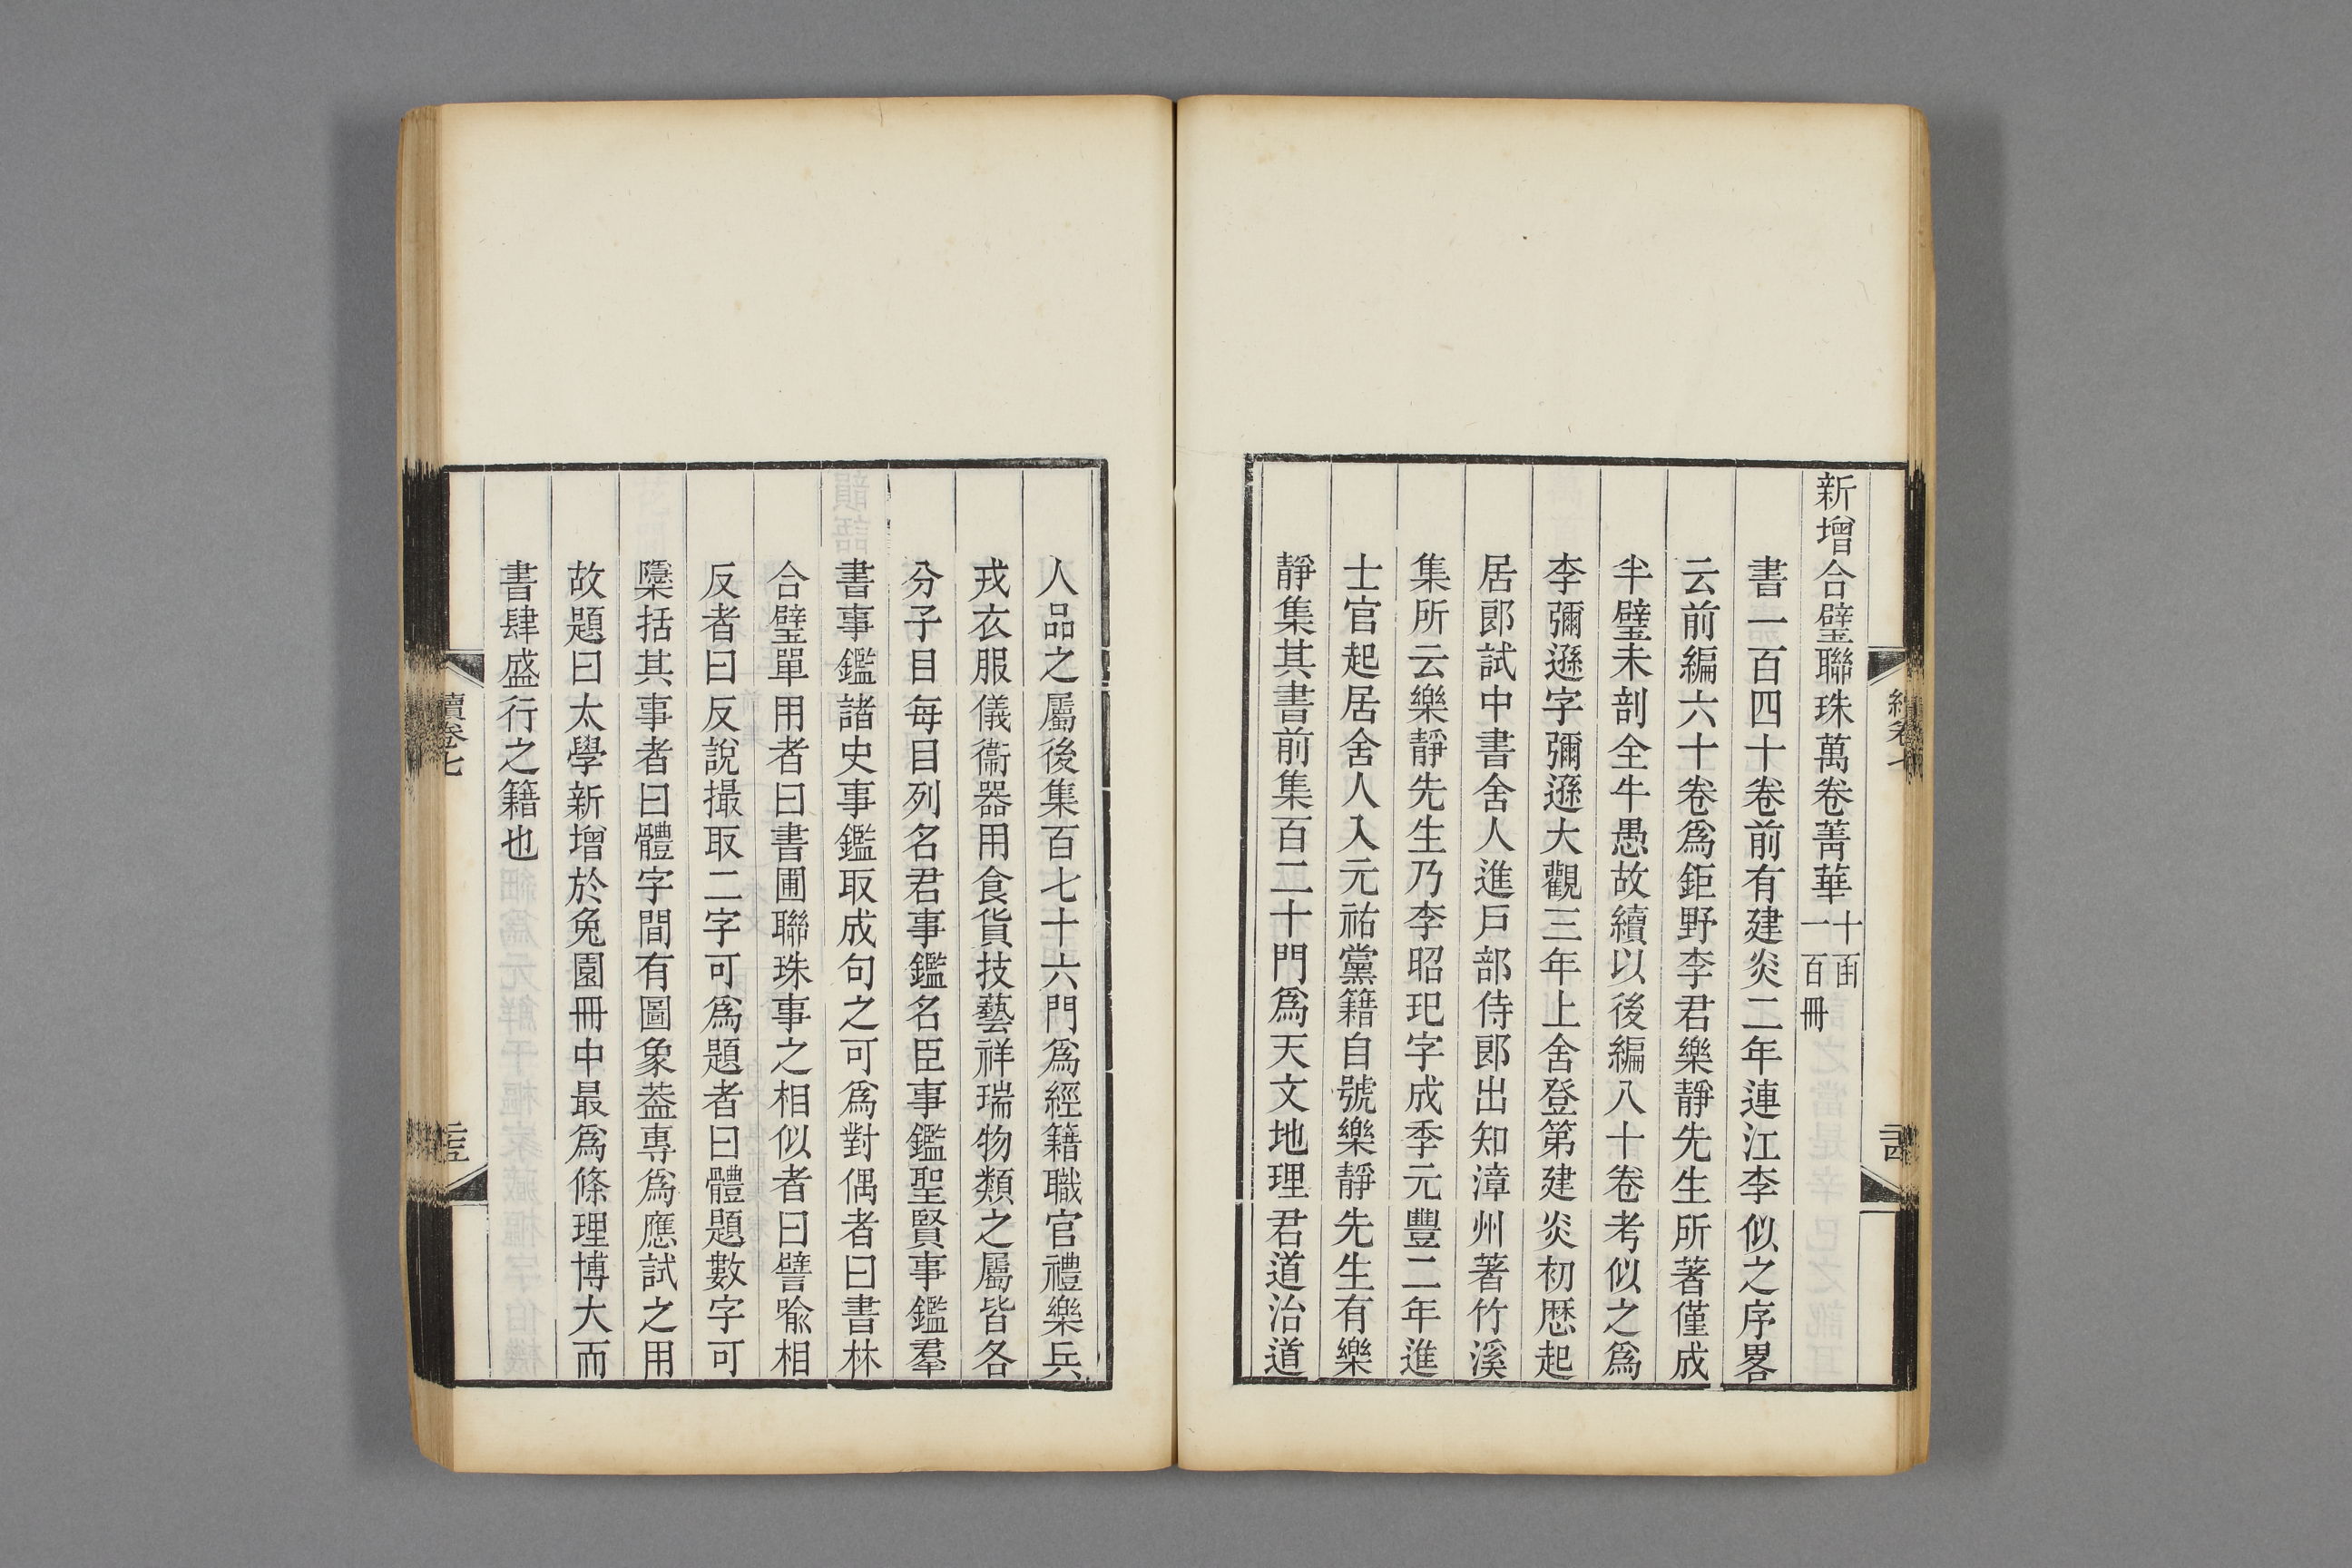 新增合璧聯珠萬卷菁華十函一百冊
書一百四十卷前有建炎二年連江李似之序畧
云前編六十卷爲鉅野李君樂靜先生所著僅成
半璧未剖全牛愚故續以後編八十卷考似之爲
李彌遜字彌遜大觀三年上舍登第建炎初歷起
居郎試中書舍人進戶部侍郎出知漳州著竹溪
集所云樂靜先生乃李昭玘字成季元豐二年進
士官起居舍人入元祐黨籍自號樂靜先生有樂
靜集其書前集百二十門爲天文地理君道治道
人品之屬後集百七十六門爲經籍職官禮樂兵
戎衣服儀衞器用食貨技藝祥瑞物類之屬皆各
分子目每目列名君事鑑名臣事鑑聖賢事鑑羣
書事鑑諸史事鑑取成句之可爲對偶者曰書林
合璧單用者曰書圃聯珠事之相似者曰譬喩相
反者曰反說撮取二字可爲題者曰體題數字可
檃括其事者曰體字間有圖象葢專爲應試之用
故題曰太學新增於兔園冊中最爲條理博大而
書肆盛行之籍也
續卷七